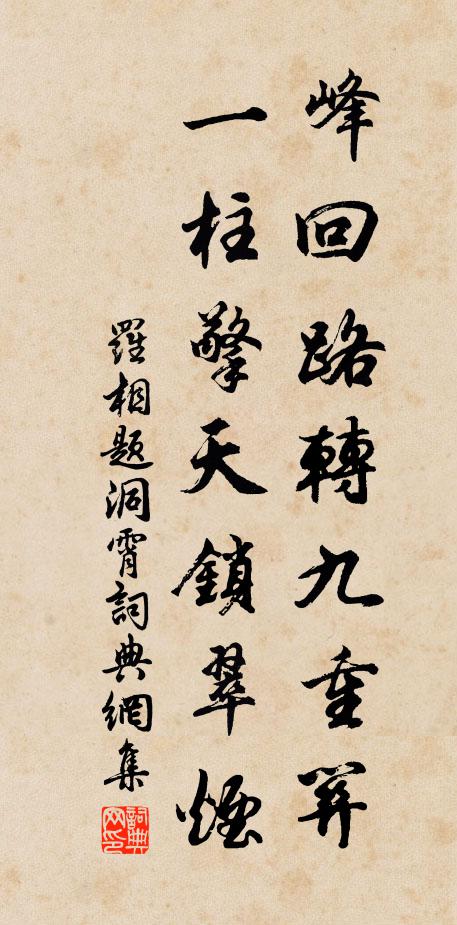 峰回路轉九重關
一柱擎天鎖翠煙
羅相題洞霄詞典網集
詞典网印